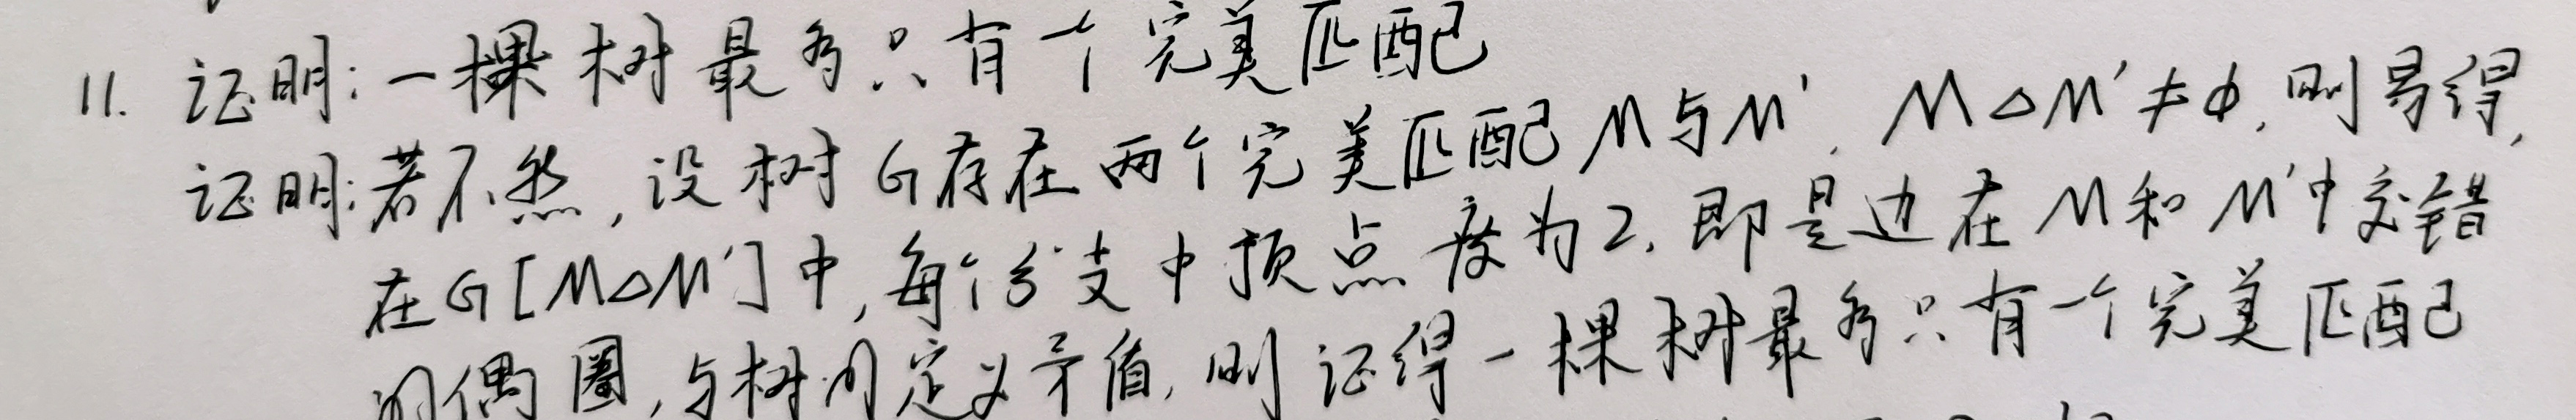 11. 证明:一棵树最多只有一个完美匹配
证明:若不然,设树G存在两个完美匹配M与M', M△M'≠ϕ,则易得,
在G[M△M']中,每个分支中顶点度为2,即是边在M和M'中交错
的偶圈,与树的定义矛盾,则证得一棵树最多只有一个完美匹配